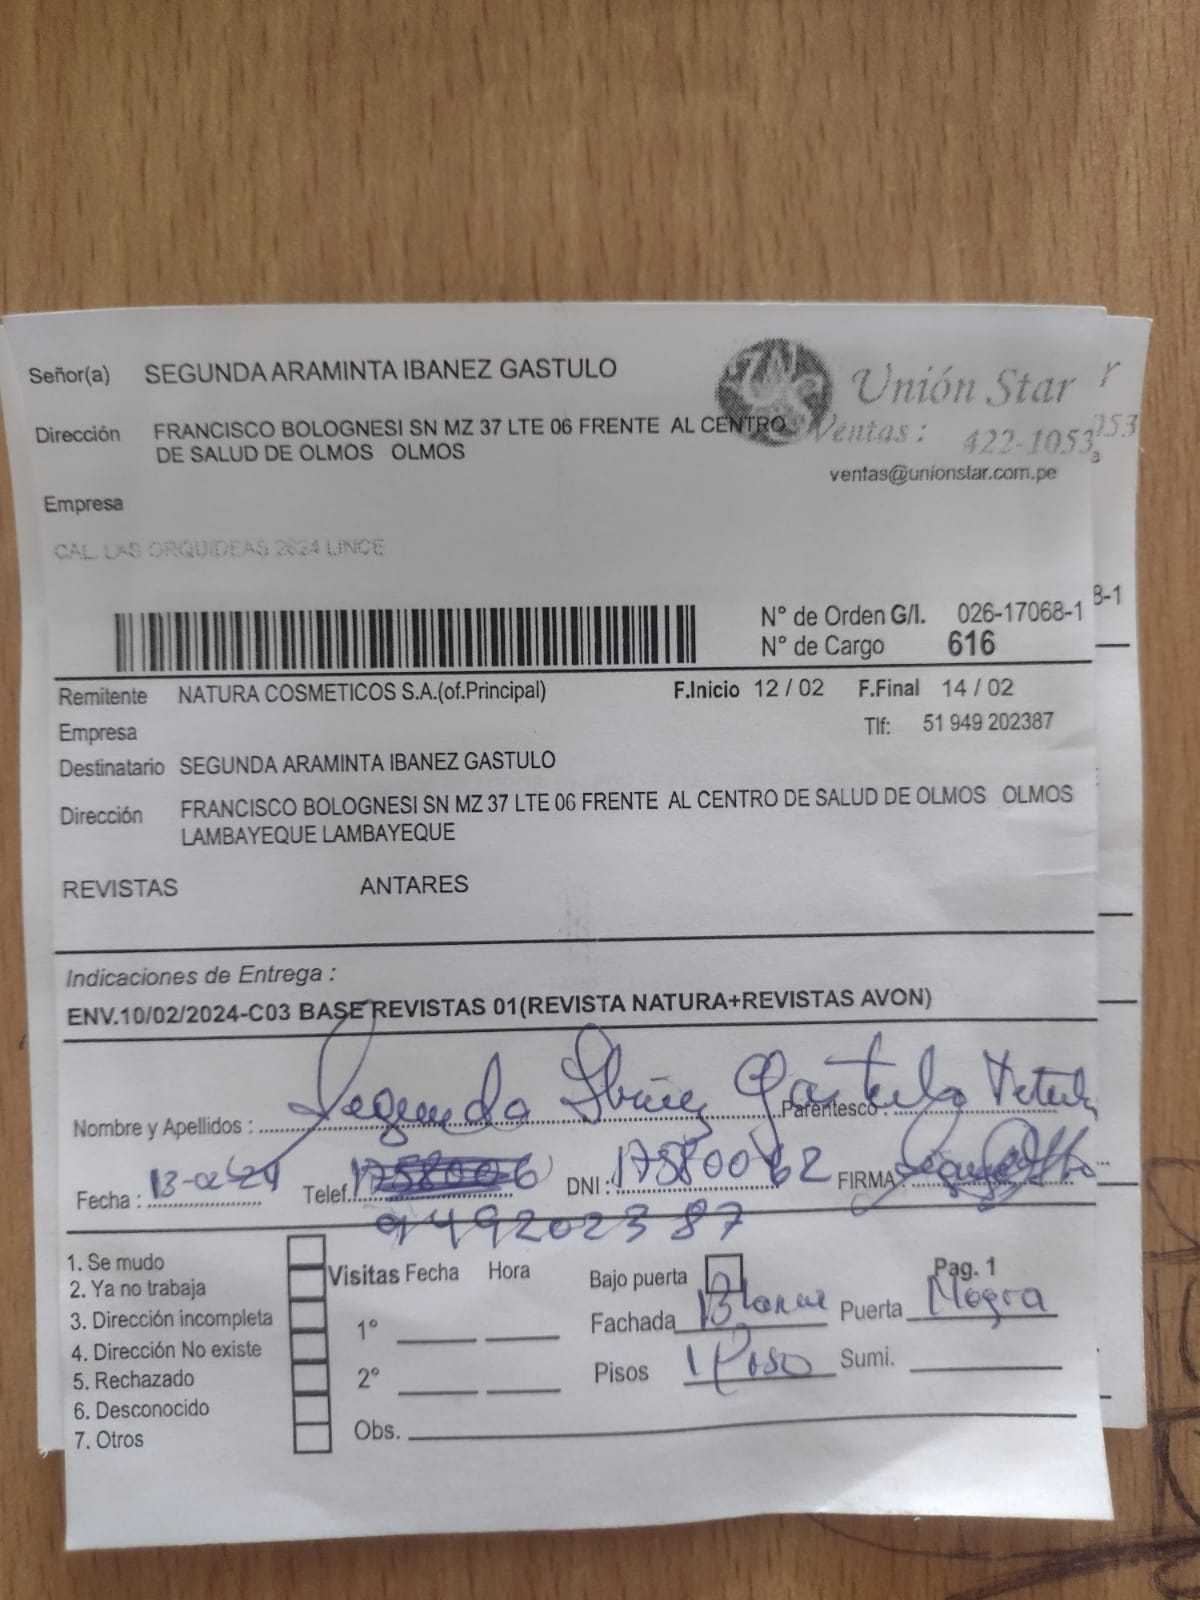 Señor(a) SEGUNDA ARAMINTA IBANEZ GASTULO
Unión Star
Dirección FRANCISCO BOLOGNESI SN MZ 37 LTE 06 FRENTE AL CENTRO
DE SALUD DE OLMOS OLMOS
Ventas: 422-1053
ventas@unionstar.com.pe
Empresa
CAL. LAS ORQUIDEAS 2624 LINCE
N° de Orden G/I. 026-17068-1
N° de Cargo 616
Remitente NATURA COSMETICOS S.A.(of.Principal) F.Inicio 12 / 02 F.Final 14 / 02
Empresa Tlf: 51 949 202387
Destinatario SEGUNDA ARAMINTA IBANEZ GASTULO
Dirección FRANCISCO BOLOGNESI SN MZ 37 LTE 06 FRENTE AL CENTRO DE SALUD DE OLMOS OLMOS
LAMBAYEQUE LAMBAYEQUE
REVISTAS ANTARES
Indicaciones de Entrega :
ENV.10/02/2024-C03 BASE REVISTAS 01(REVISTA NATURA+REVISTAS AVON)
Nombre y Apellidos : Segunda Ibañez Gastulo Parentesco :
Fecha : 13-02-24 Telef. DNI : 17580062 FIRMA :
949202387
1. Se mudo
2. Ya no trabaja
3. Dirección incompleta
4. Dirección No existe
5. Rechazado
6. Desconocido
7. Otros
Visitas Fecha Hora
1°
2°
Obs.
Bajo puerta Pag. 1
Fachada Puerta Negra
Pisos 1 Piso Sumi.